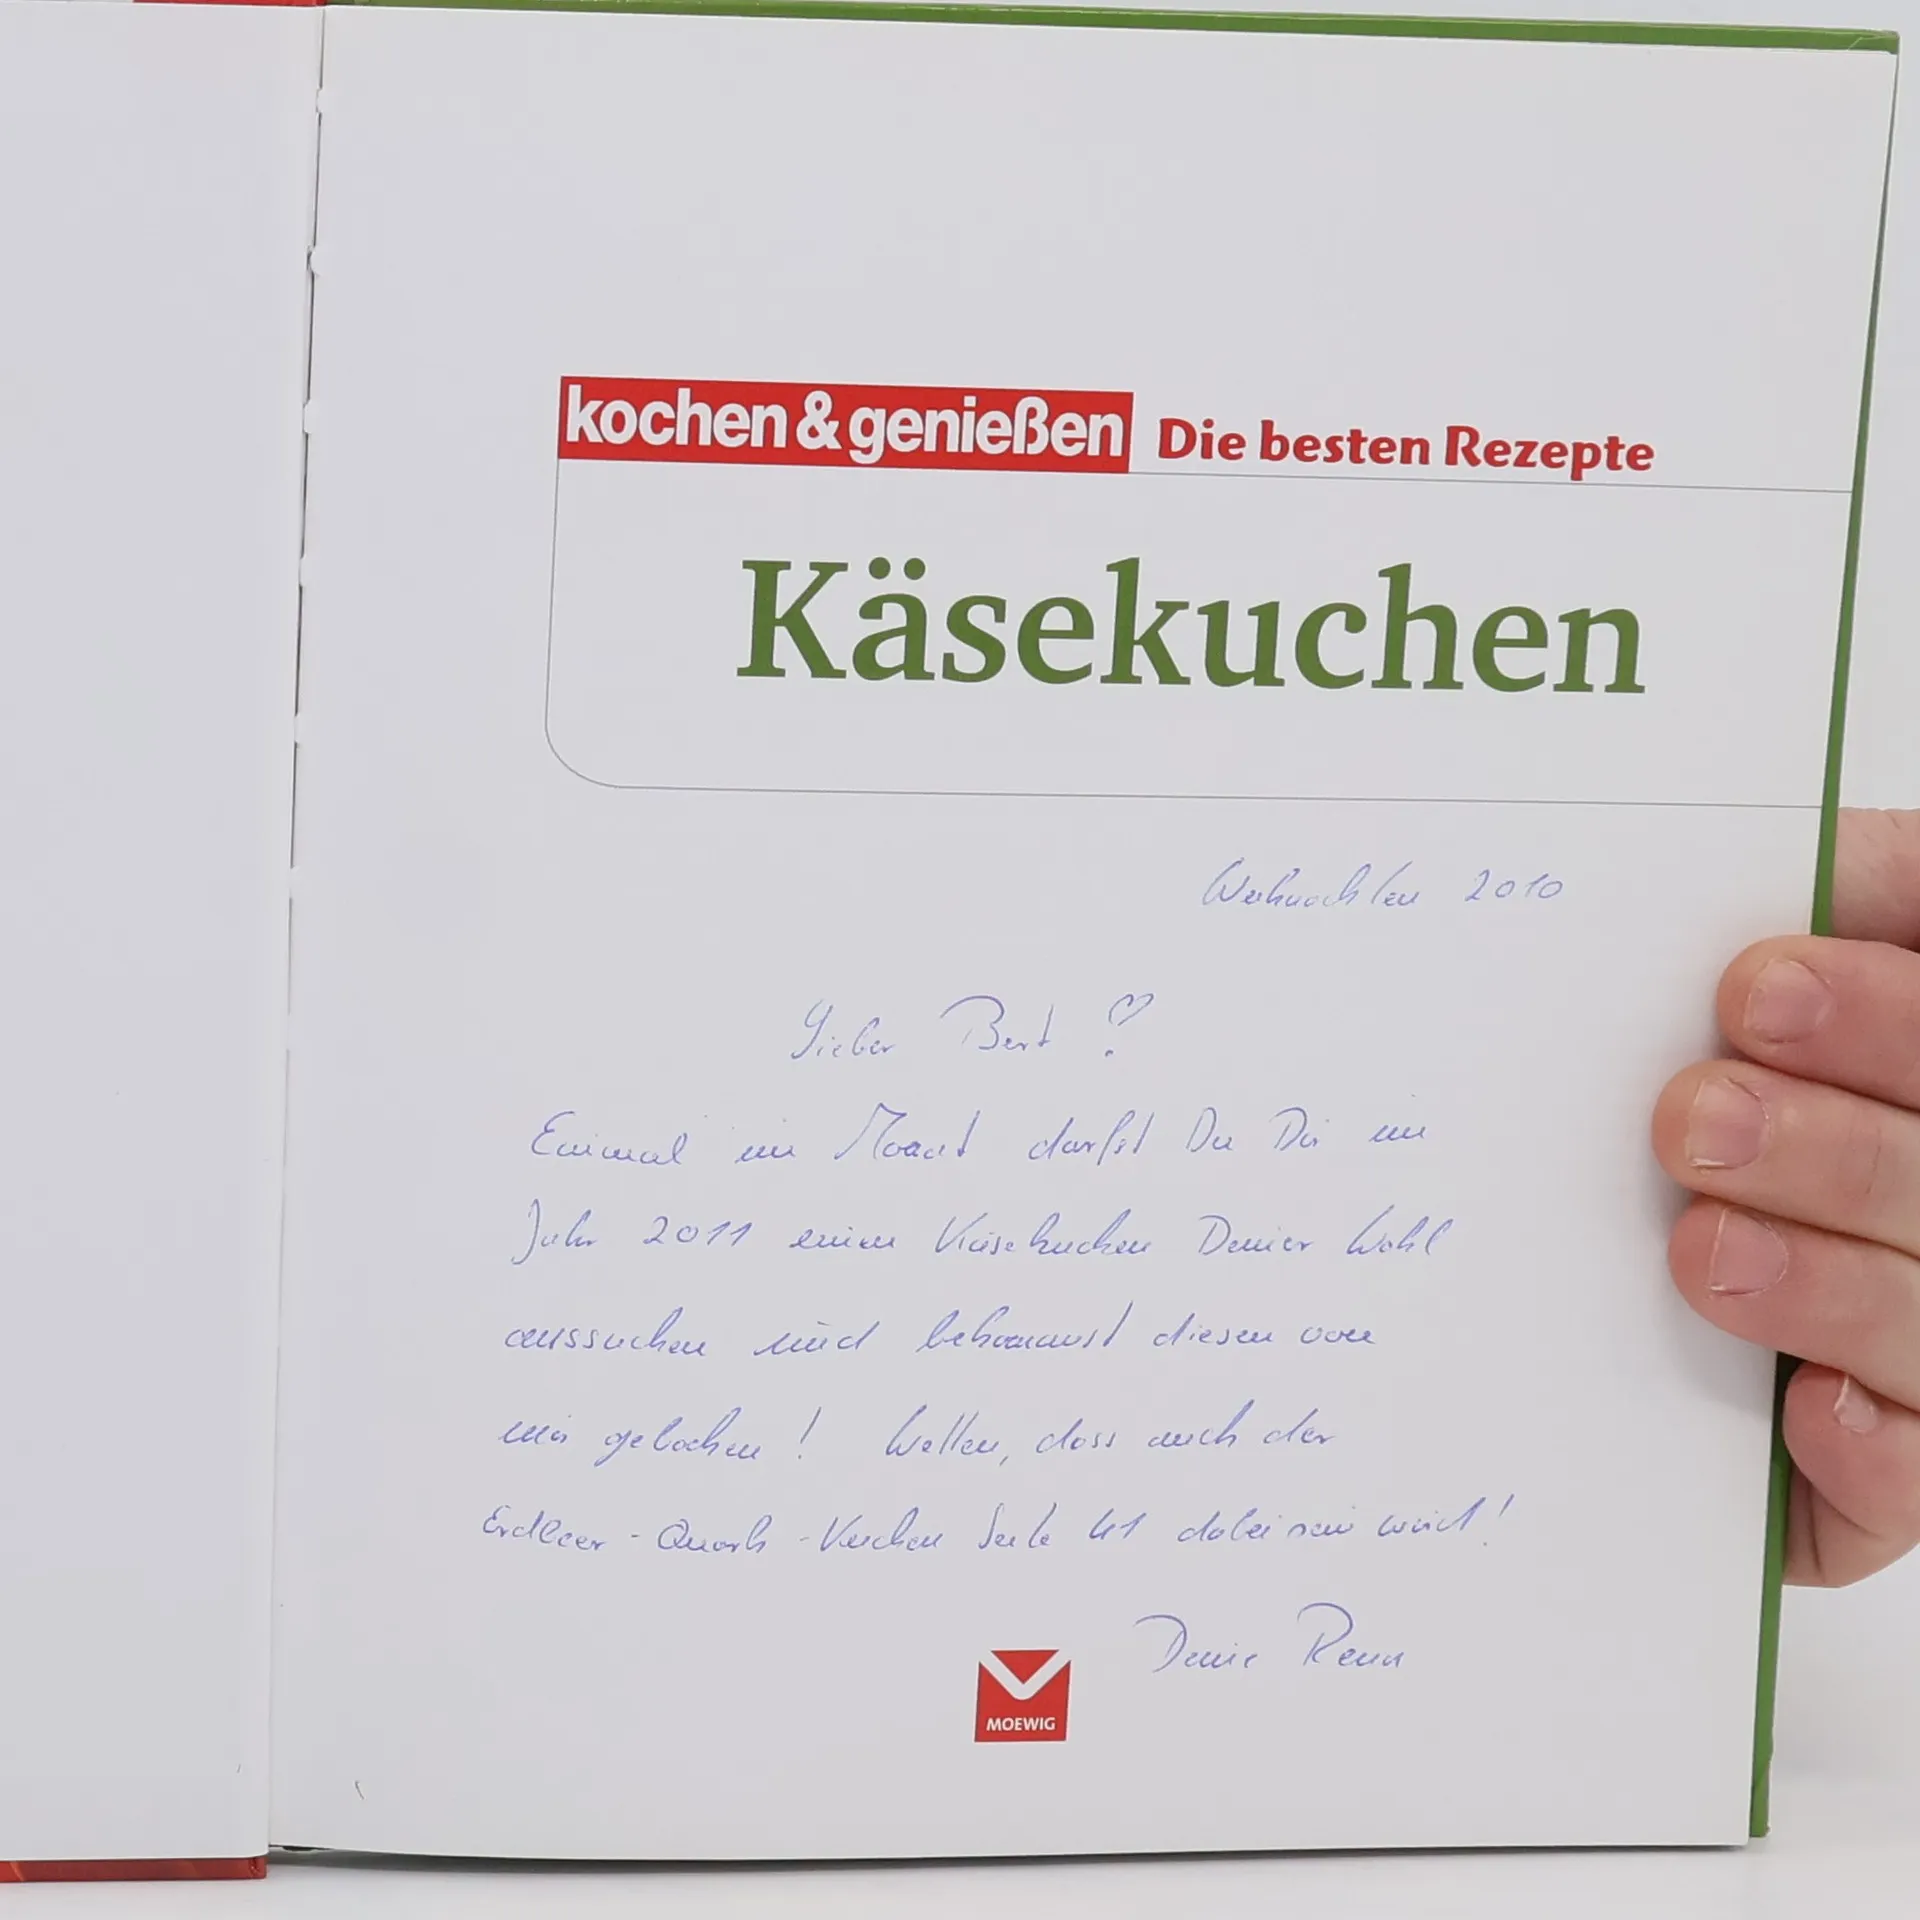 kochen & genießen Die besten Rezepte
Käsekuchen
Weihnachten 2010
Lieber Bert
Einmal im Monat darfst Du Dir im
Jahr 2011 einen Käsekuchen Deiner Wahl
aussuchen und bekommst diesen von
mir gebacken! Wetten, dass auch der
Erdbeer-Quark-Kuchen Seite 41 dabei sein wird!
Deine Rena
MOEWIG